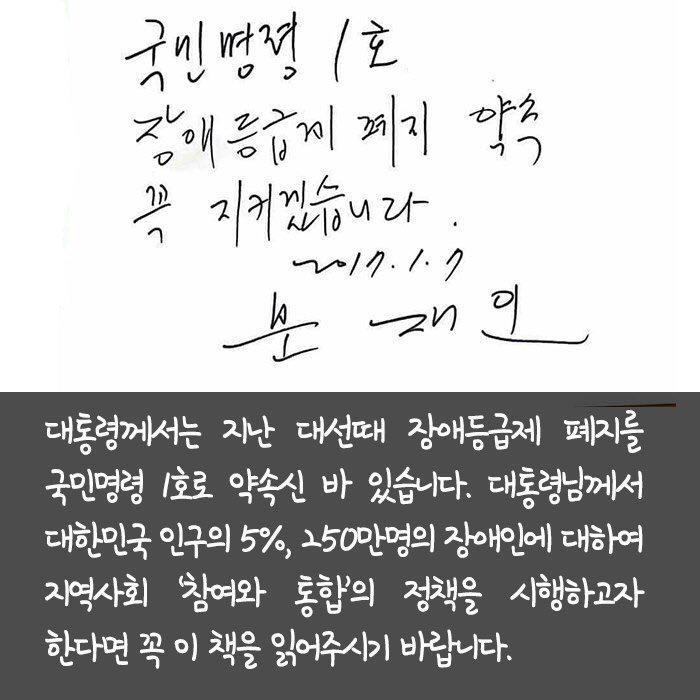 국민명령 1호
장애등급제 폐지 약속
꼭 지키겠습니다.
2017.1.7
문재인
대통령께서는 지난 대선때 장애등급제 폐지를
국민명령 1호로 약속신 바 있습니다. 대통령님께서
대한민국 인구의 5%, 250만명의 장애인에 대하여
지역사회 ‘참여와 통합’의 정책을 시행하고자
한다면 꼭 이 책을 읽어주시기 바랍니다.